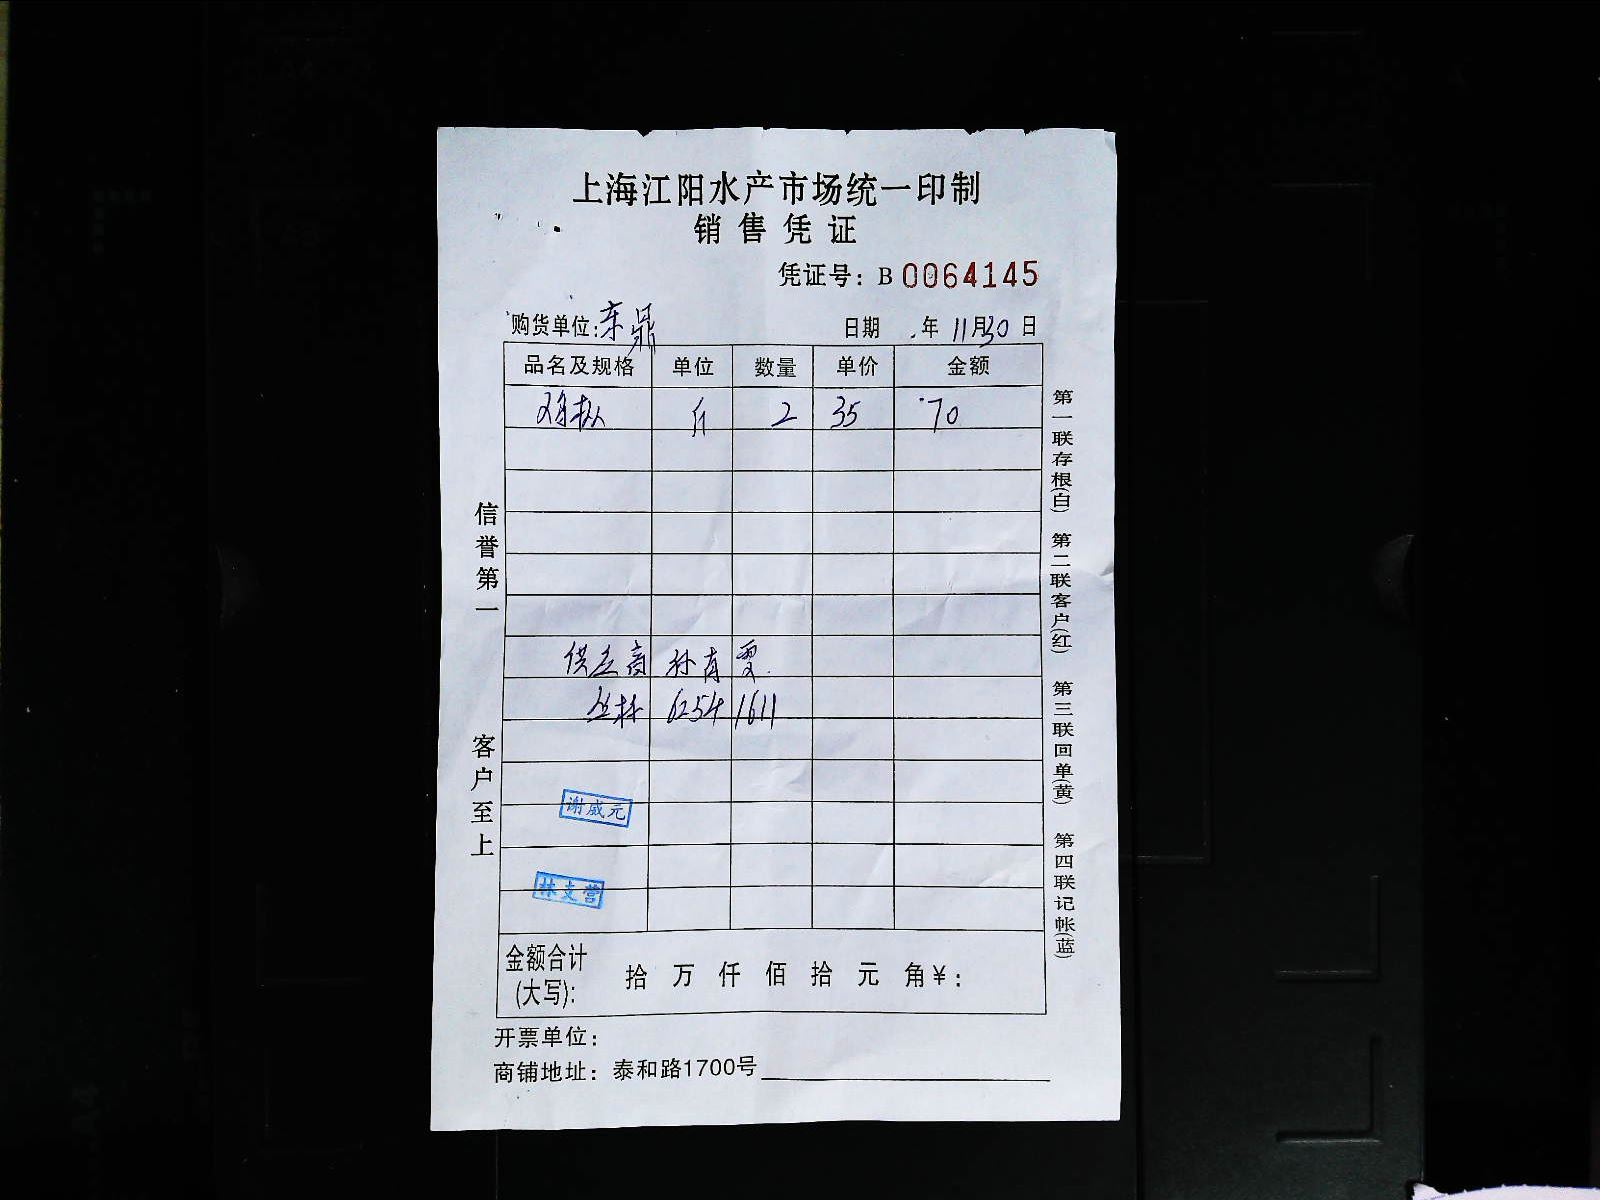 上海江阳水产市场统一印制
销售凭证
凭证号：B 0064145
购货单位：东鼎 日期 年 11月30日
品名及规格 单位 数量 单价 金额
鸡枞 斤 2 35 70
供应商 孙有雯
丛林 62541611
谢威元
林支营
金额合计(大写)： 拾 万 仟 佰 拾 元 角 ¥：
开票单位：
商铺地址：泰和路1700号
信誉第一
客户至上
第一联存根(白)
第二联客户(红)
第三联回单(黄)
第四联记帐(蓝)